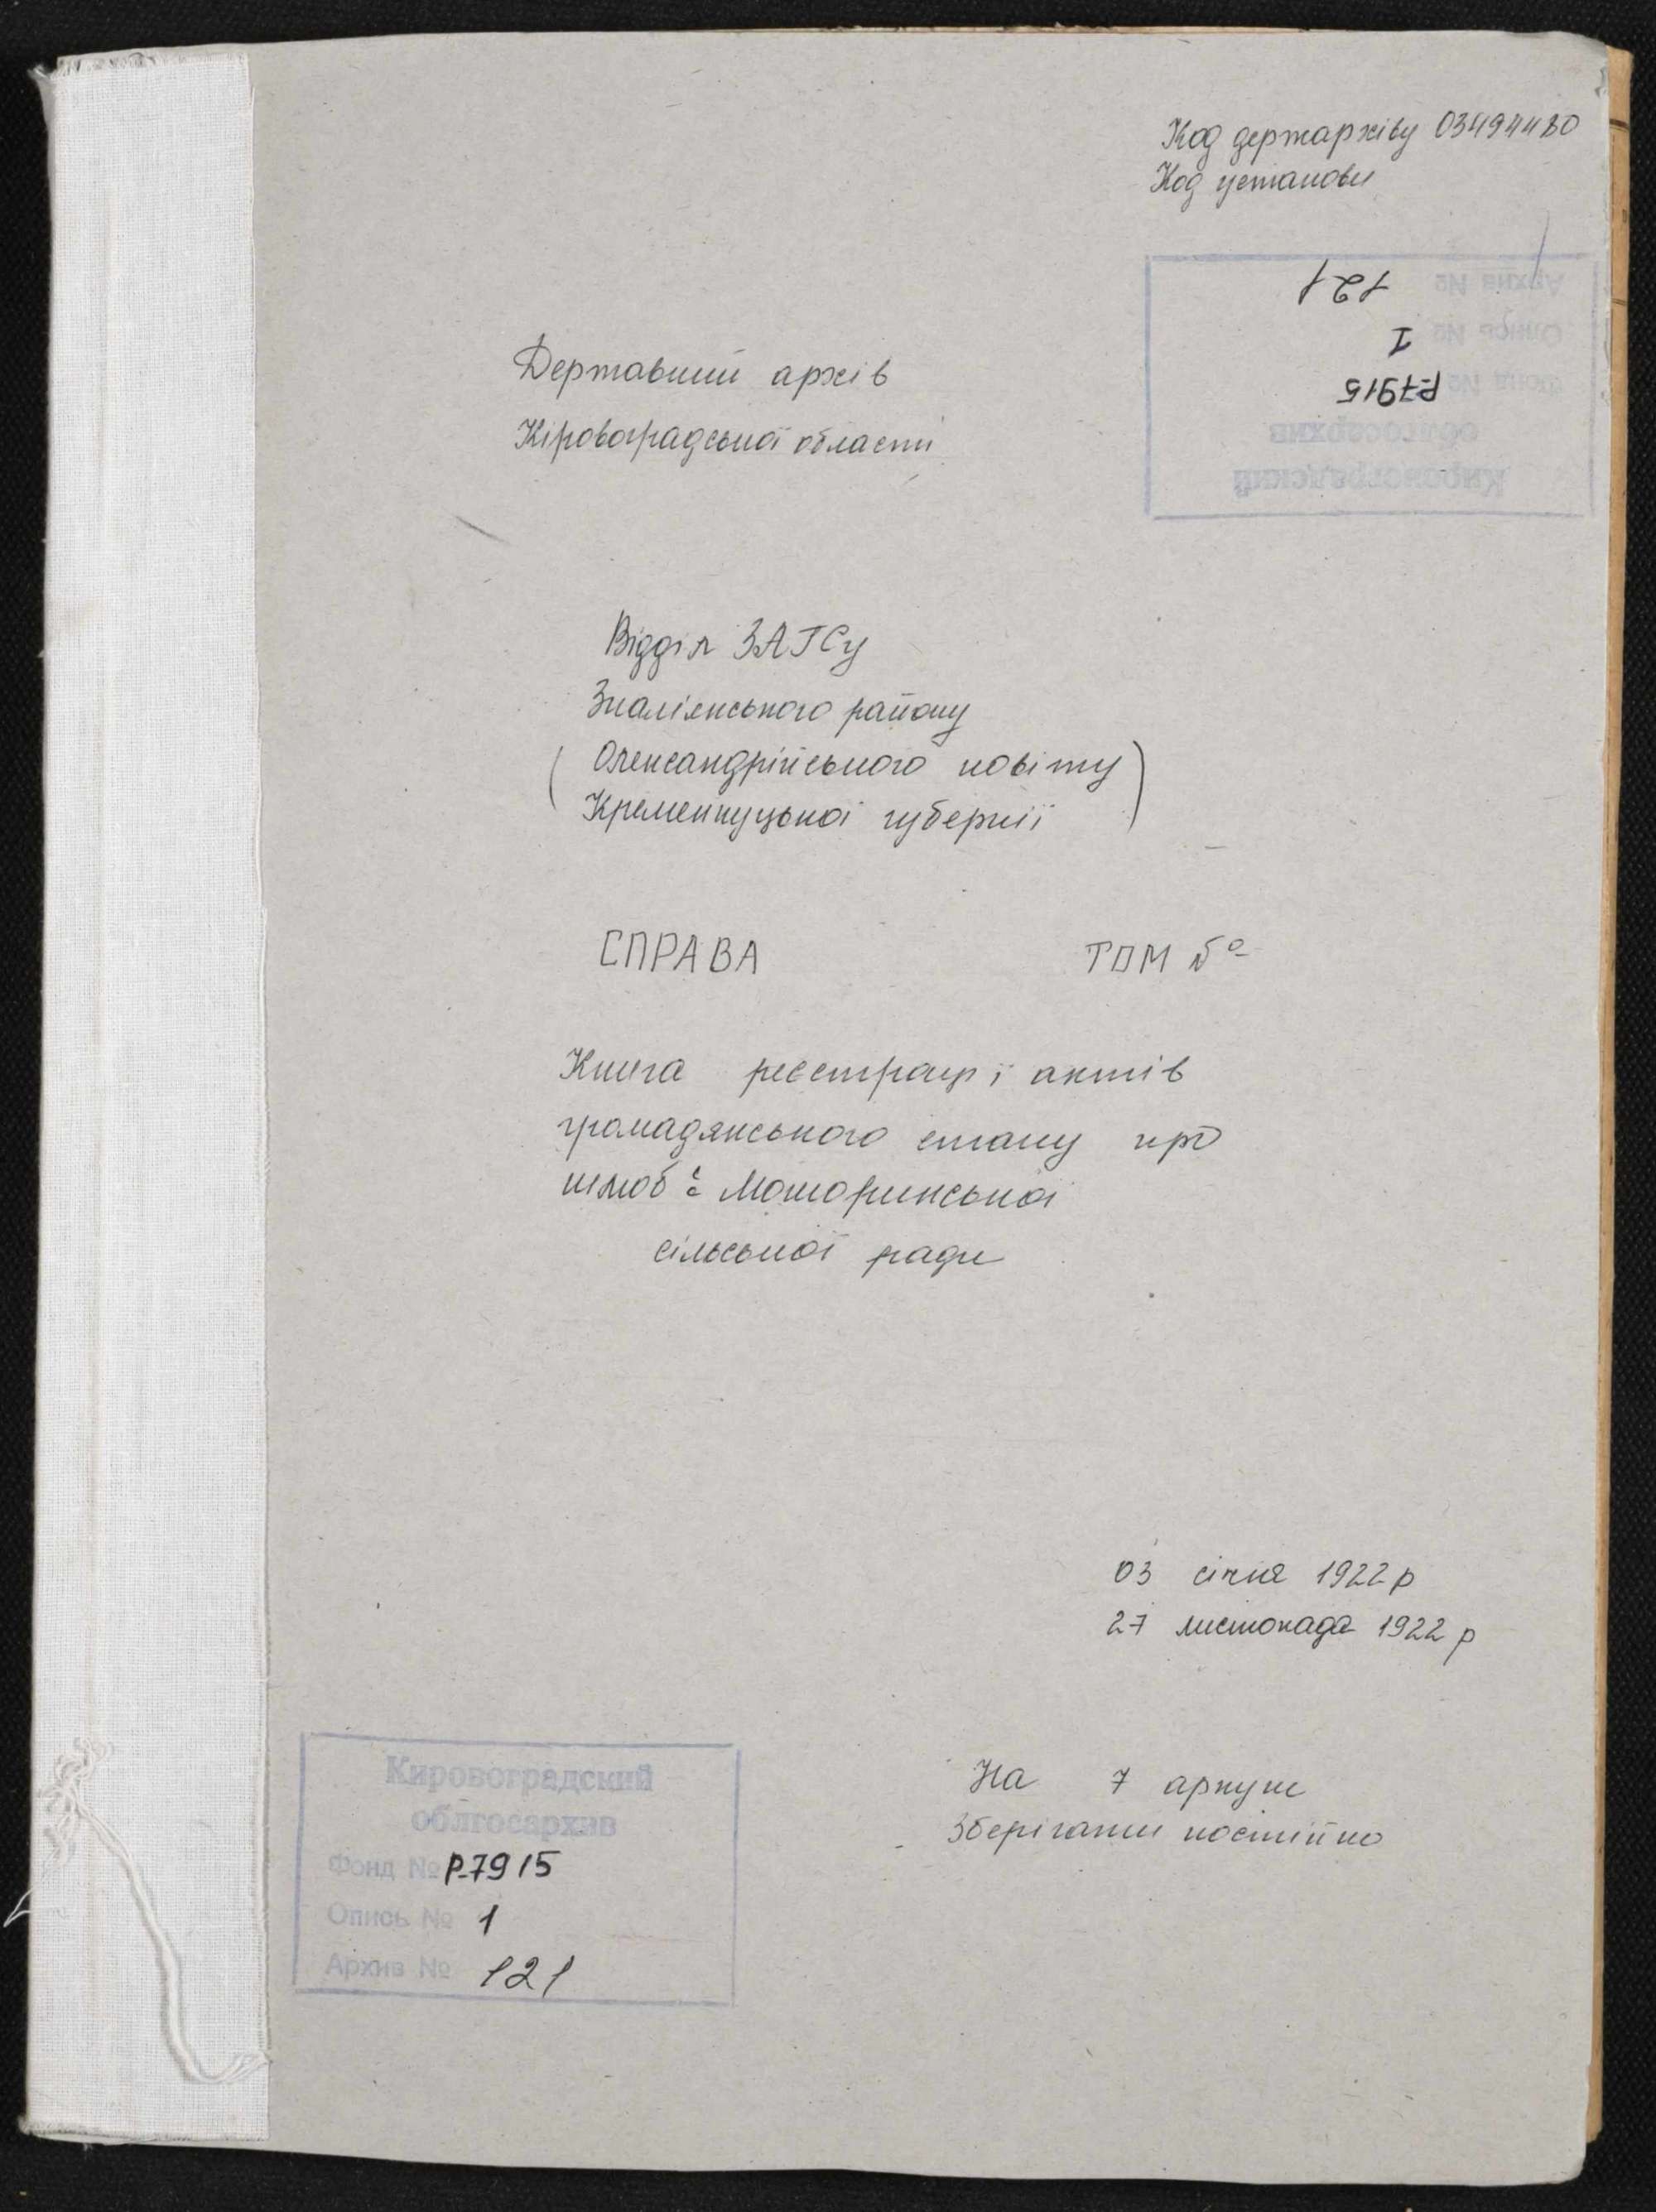 Код держархіву 03494480
Код установи
Архив № 121
Опись № 1
Фонд № Р-7915
облгосархив
Кировоградский
Державний архів
Кіровоградської області
Відділ ЗАГСу
Знам'янського району
( Олександрійського повіту )
Кременчуцької губернії
СПРАВА ТОМ №
Книга реєстрації актів
громадянського стану про
шлюб: Мошоринської
сільської ради
03 січня 1922 р
27 листопада 1922 р
На 7 аркуш
Зберігати постійно
Кировоградский
облгосархив
Фонд № Р-7915
Опись № 1
Архив № 121